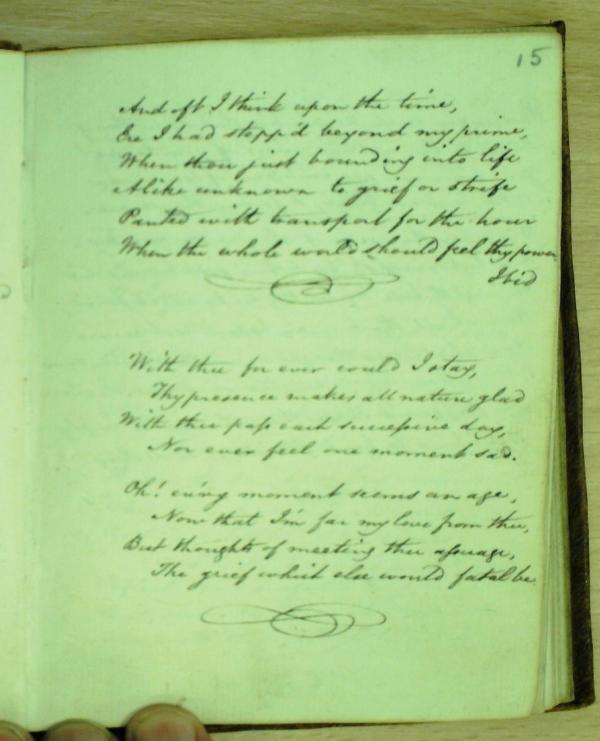 15
And oft I think upon the time,
Ere I had stepp'd beyond my prime,
When thou just bounding into life
Alike unknown to grief or strife
Panted with transport for the hour
When the whole world should feel thy power
Ibid
With thee for ever could I stay,
Thy presence makes all nature glad
With thee pass each successive day,
Nor ever feel one moment sad.
Oh! ev'ry moment seems an age,
Now that I'm far my love from thee,
But thoughts of meeting thee assuage,
The grief which else would fatal be